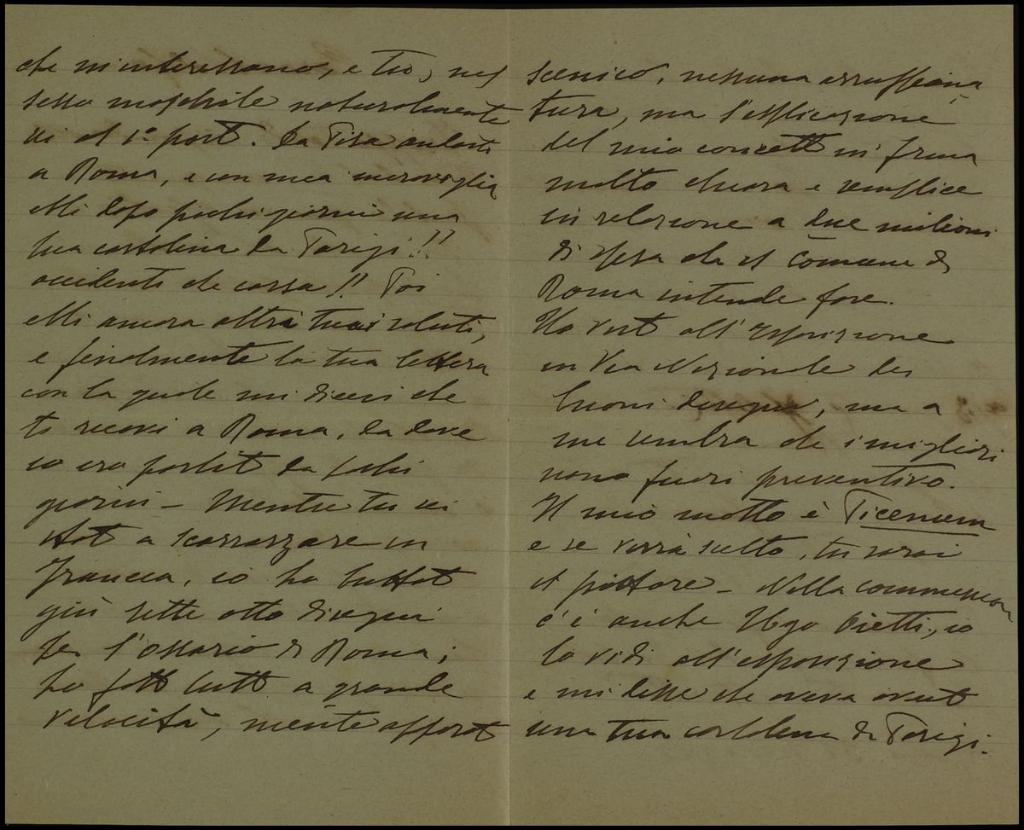 che m'interessano, e tu, nel
sesso maschile naturalmente
sei al 1° post. Da Pisa andasti
a Roma, e con mia meraviglia
ebbi dopo pochi giorni una
tua cartolina da Parigi!!
accidenti che corsa!! Poi
ebbi ancora altri tuoi saluti,
e finalmente la tua lettera
con la quale mi dicevi che
ti recavi a Roma, da dove
io ero partit da pochi
giorni – Mentre tu sei
stat a scorrazzare in
Francia, io ho buttat
giù sette otto disegni
per l'Ossario di Roma;
ho fatt tutt a grande
velocità, niente apparat
scenico, nessuna arruffiana
tura, ma l'esplicazione
del mio concett in forma
molto chiara e semplice
in relazione a due milioni
di spesa che il Comune di
Roma intende fare.
Ho vist all'esposizione
in Via Nazionale dei
buoni disegni, ma a
me sembra che i migliori
sono fuori preventivo.
Il mio motto è Ticenum
e se verrà scelto, tu sarai
il pittore – Nella commission
c'è anche Ugo Ojetti, io
lo vidi all'esposizione
e mi disse che aveva avut
una tua cartolina da Parigi.